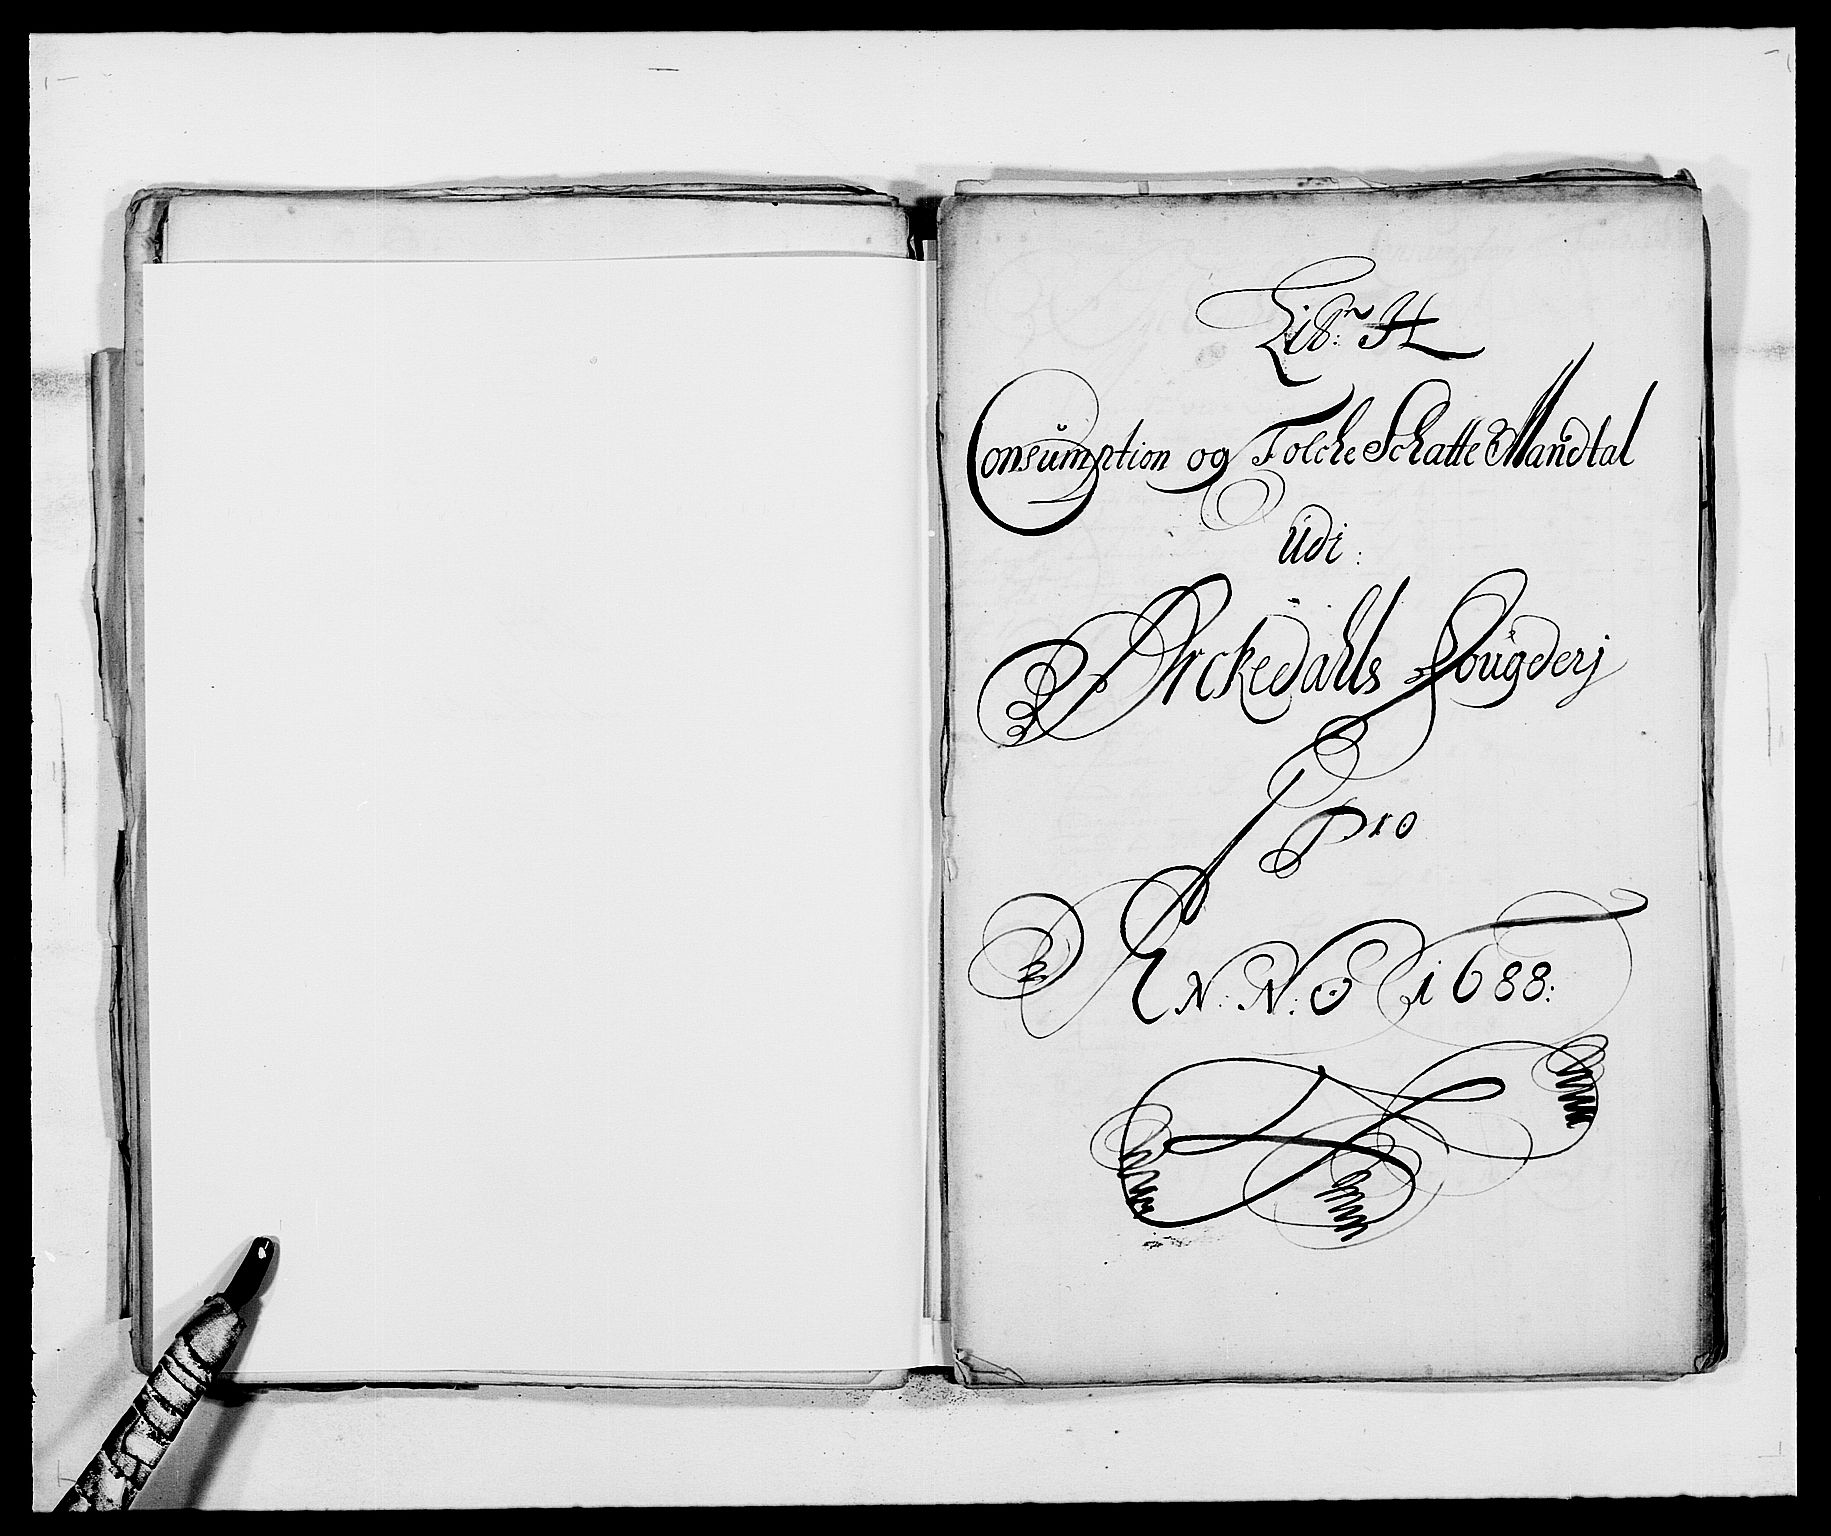 Lib:r H
Consumption og Folche Schatte Mandtal
Udi:
Orckedahls Fougderj
Pro
AN:N:O 1688: